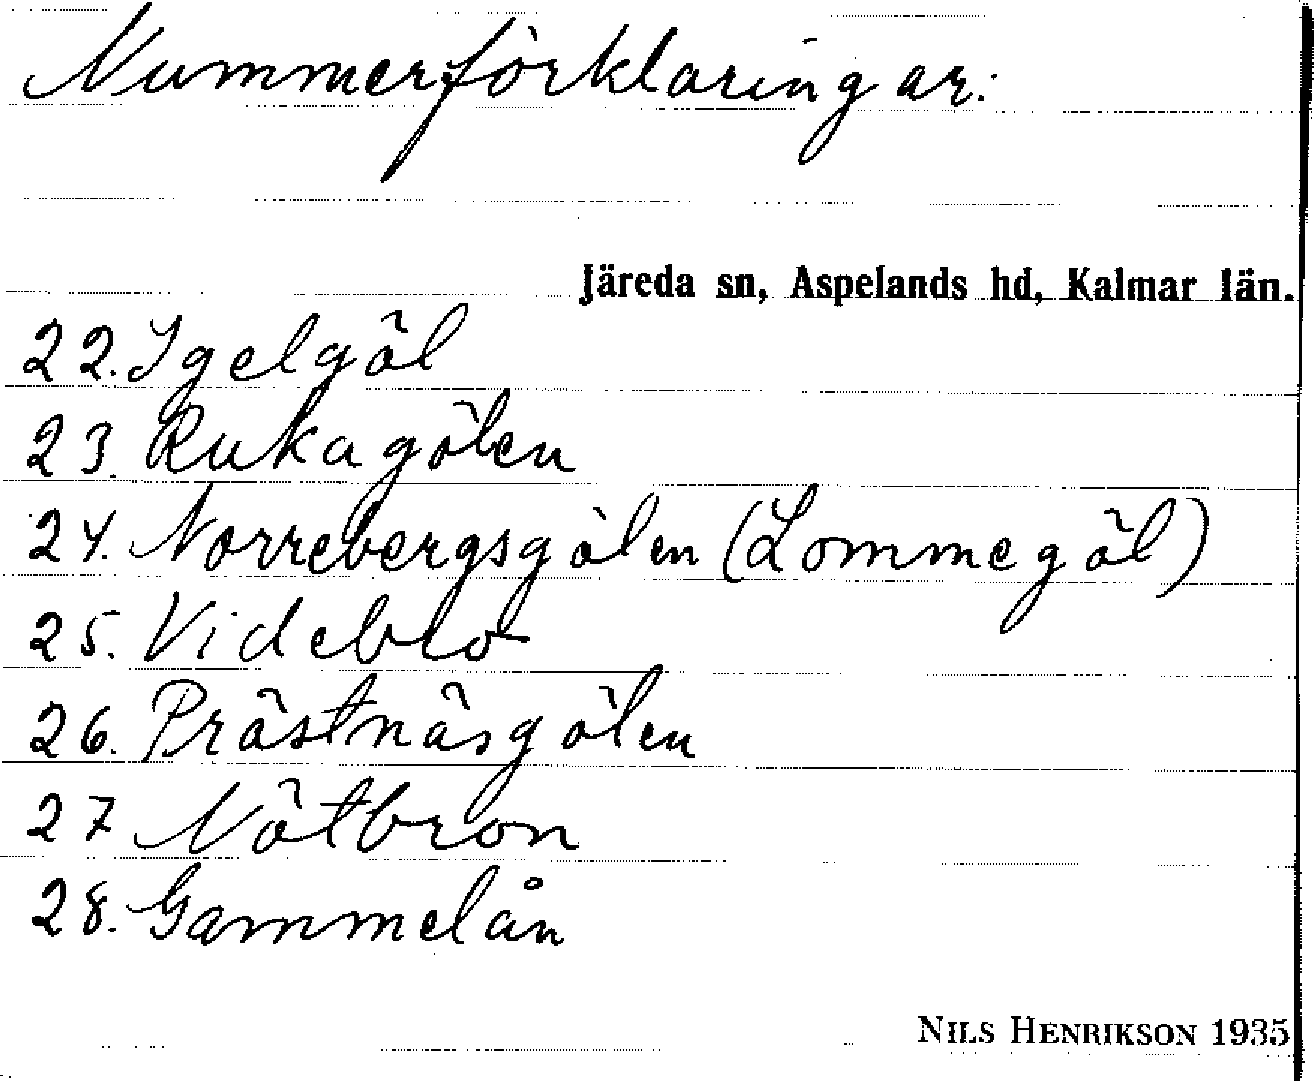 Nummerförklaringar:
Järeda sn, Aspelands hd, Kalmar län.
22. Igelgöl
23. Rukagölen
24. Norrebergsgölen (Lommegöl)
25. Videbro
26. Prästnäsgölen
27 Nötbron
28. Gammelån
NILS HENRIKSON 1935